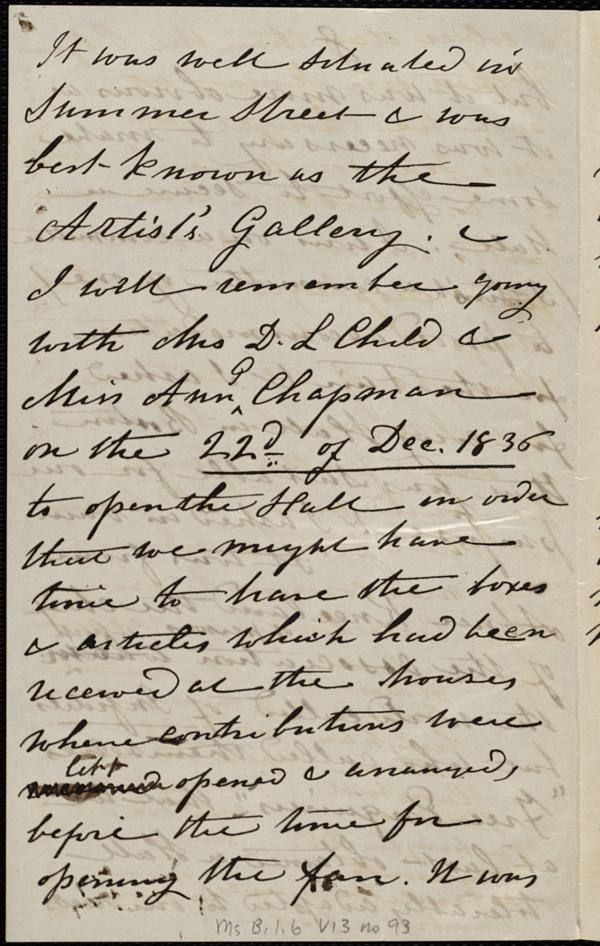 It was well situated in
Summer Street & was
best known as the
Artist's Gallery. &
I well remember going
with Mrs D. L Child &
Miss Ann G Chapman
on the 22d of Dec. 1836
to open the Hall in order
that we might have
time to have the boxes
& articles which had been
received at the houses
where contributions were
left opened & arranged,
before the time for
opening the fair. It was
Ms B.1.6 V13 no 93